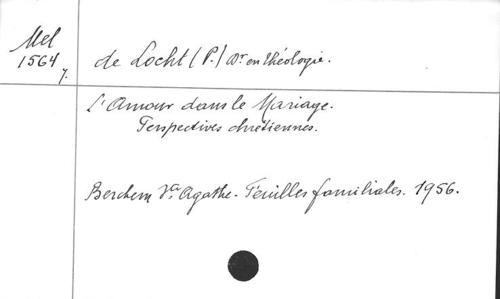 Mel
1564
7.
de Locht (P.) Dr en théologie.
L'Amour dans le Mariage.
Perspectives chrétiennes.
Berchem Ste Agathe - Feuilles familiales. 1956.